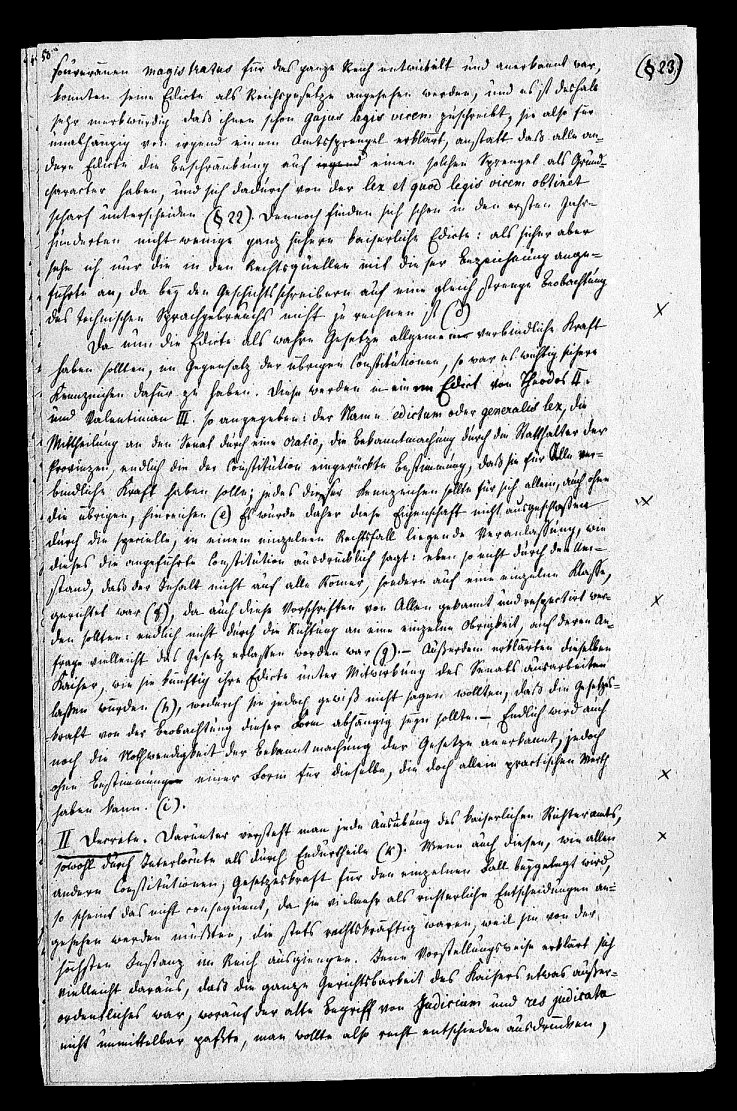 50
(§ 23.)
souveränen magistratus für das ganze Reich entwickelt und anerkannt war,
konnten seine Edicte als Reichsgesetze angesehen werden, und es ist deshalb
sehr merkwürdig daß ihnen schon Gajus legis vicem zuschreibt, sie also für
unabhängig von irgend einem Amtssprengel erklärt, anstatt daß alle an-
dere Edicte die Beschränkung auf irgend einen solchen Sprengel als Grund-
character haben, und sich dadurch von der lex et quod legis vicem obtinet
scharf unterscheiden (§ 22). Dennoch finden sich schon in den ersten Jahr-
hunderten nicht wenige ganz sichere kaiserliche Edicte: als sicher aber
sehe ich nur die in den Rechtsquellen mit dieser Bezeichnung ange-
führte an, da bey den Geschichtsschreibern auf eine gleich strenge Beobachtung
des technischen Sprachgebrauchs nicht zu rechnen ist (d)
Da nun die Edicte als wahre Gesetze allgemein verbindliche Kraft
haben sollten, im Gegensatz der übrigen Constitutionen, so war es wichtig sichere
Kennzeichen dafür zu haben. Diese werden in einem Edict von Theodos II.
und Valentinian III. so angegeben: der Name edictum oder generalis lex, die
Mittheilung an den Senat durch eine oratio, die Bekanntmachung durch die Statthalter der
Provinzen, endlich die der Constitution eingerückte Bestimmung, daß sie für Alle ver-
bindliche Kraft haben solle; jedes dieser Kennzeichen sollte für sich allein, auch ohne
die übrigen, hinreichen (e) Es würde daher diese Eigenschaft nicht ausgeschlossen
durch die specielle, in einem einzelnen Rechtsfall liegende Veranlassung, wie
dieses die angeführte Constitution ausdrücklich sagt: eben so nicht durch den Um-
stand, daß der Inhalt nicht auf alle Römer, sondern auf eine einzelne Klasse,
gerichtet war (f), da auch diese Vorschriften von Allen gekannt und respectirt wer-
den sollten: endlich nicht durch die Richtung an eine einzelne Obrigkeit, auf deren An-
frage vielleicht das Gesetz erlassen worden war (g). – Außerdem erklärten dieselben
Kaiser, wie sie künftig ihre Edicte unter Mitwirkung des Senats ausarbeiten
lassen würden (h), wodurch sie jedoch gewiß nicht sagen wollten, daß die Gesetzes-
kraft von der Beobachtung dieser Form abhängig seyn sollte. – Endlich wird auch
noch die Nothwendigkeit der Bekanntmachung der Gesetze anerkannt, jedoch
ohne Bestimmung einer Form für dieselbe, die doch allein practischen Werth
haben kann. (i).
II Decrete. Darunter versteht man jede Ausübung des kaiserlichen Richteramts,
sowohl durch Interlocute als durch Endurtheile (k). Wenn auch diesen, wie allen
andern Constitutionen, Gesetzeskraft für den einzelnen Fall beygelegt wird,
so scheint das nicht consequent, da sie vielmehr als richterliche Entscheidungen an-
gesehen werden mußten, die stets rechtskräftig waren, weil sie von der
höchsten Instanz im Reich ausgiengen. Jene Vorstellungsweise erklärt sich
vielleicht daraus, daß die ganze Gerichtsbarkeit des Kaisers etwas außer-
ordentliches war, worauf der alte Begriff von Judicium und res judicata
nicht unmittelbar paßte, man wollte also recht entschieden ausdrücken,